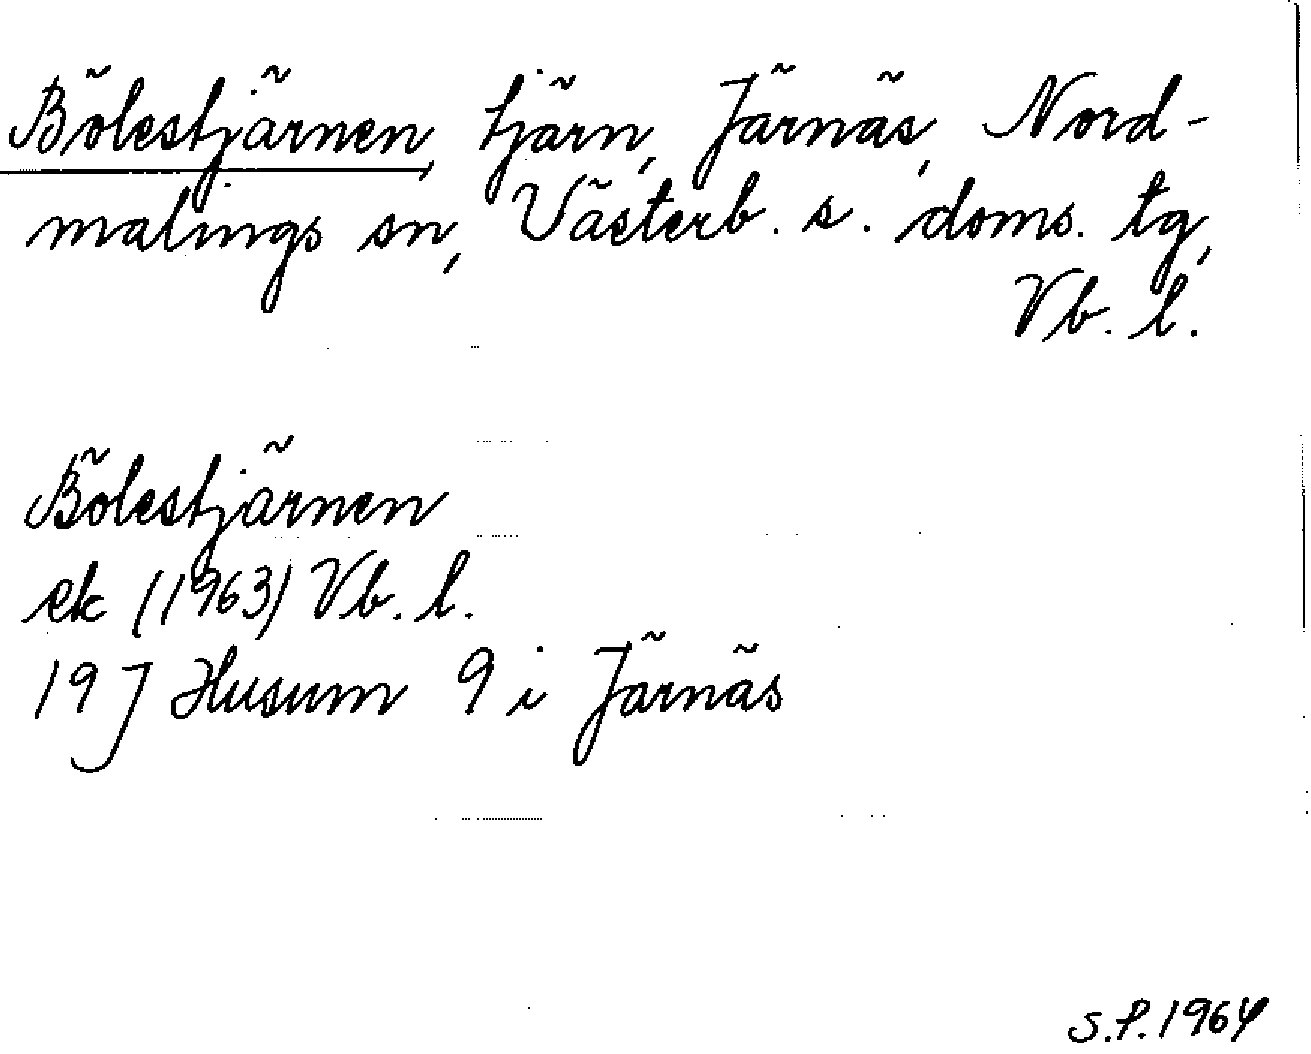 Bölestjärnen, tjärn, Järnäs, Nord-
malings sn, Västerb. s. doms. tg,
Vb. l.
Bölestjärnen
ek (1963) Vb. l.
19 J Husum 9 i Järnäs
S.P. 1964